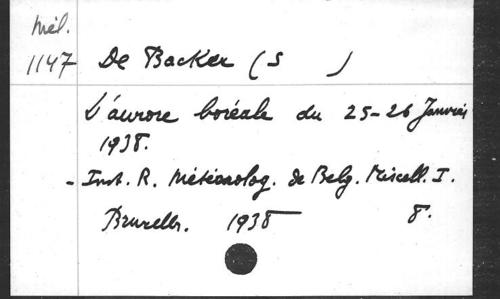 Mél.
1147 De Backer (S )
L'aurore boréale du 25-26 Janvier
1938.
- Inst. R. Météorolog. de Belg. Miscell. I.
Bruxelles. 1938 8°.